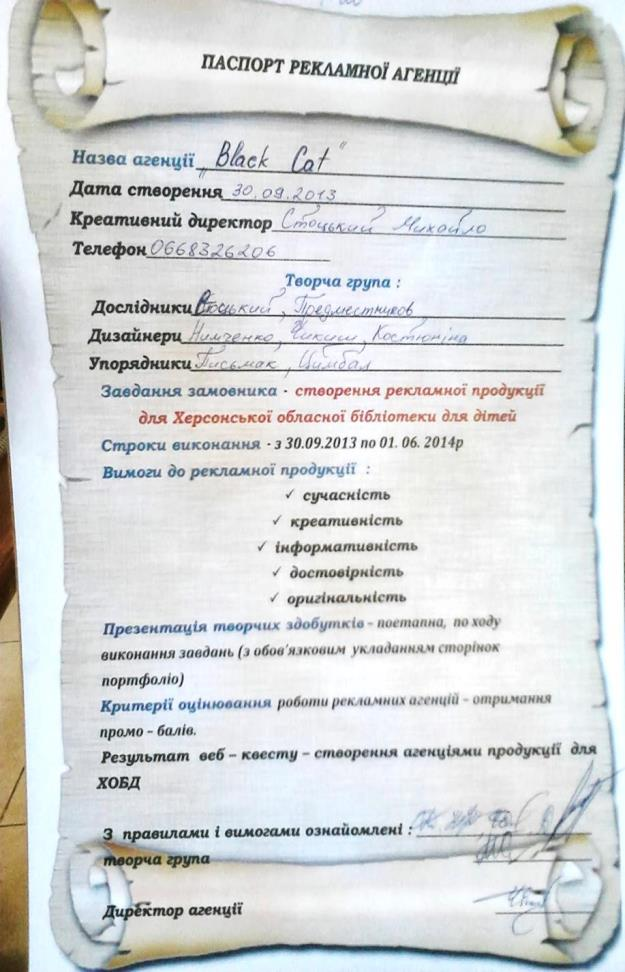 ПАСПОРТ РЕКЛАМНОЇ АГЕНЦІЇ
Назва агенції „Black Cat"
Дата створення 30.09.2013
Креативний директор Стоцький Михайло
Телефон 0668326206
Творча група :
Дослідники Стоцький, Предместников
Дизайнери Нимченко, Чикиш, Костюніна
Упорядники Письмак, Цимбал
Завдання замовника - створення рекламної продукції
для Херсонської обласної бібліотеки для дітей
Строки виконання - з 30.09.2013 по 01. 06. 2014р
Вимоги до рекламної продукції :
✓ сучасність
✓ креативність
✓ інформативність
✓ достовірність
✓ оригінальність
Презентація творчих здобутків – поетапна, по ходу
виконання завдань (з обов'язковим укладанням сторінок
портфоліо)
Критерії оцінювання роботи рекламних агенцій – отримання
промо – балів.
Результат веб – квесту – створення агенціями продукції для
ХОБД
З правилами і вимогами ознайомлені :
творча група
Директор агенції